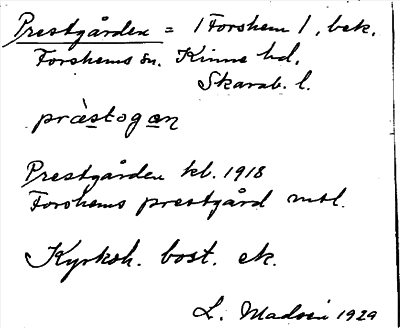 Prestgården = /Forshem/, bek.
Forshems sn. Kinne hd.
Skarab. l.
præ̀stogan
Prestgården kbl. 1918
Forshems prestgård mtl.
Kyrkoh. bost. ek.
L. Madsén 1929